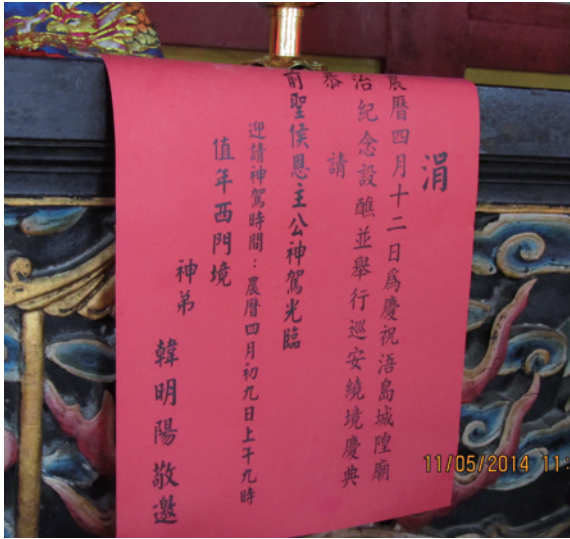 涓
農曆四月十二日為慶祝浯島城隍廟
治紀念設醮並舉行巡安繞境慶典
恭
請
前聖侯恩主公神駕光臨
迎請神駕時間：農曆四月初九日上午九時
值年西門境
神弟
韓明陽敬邀
11/05/2014 11: